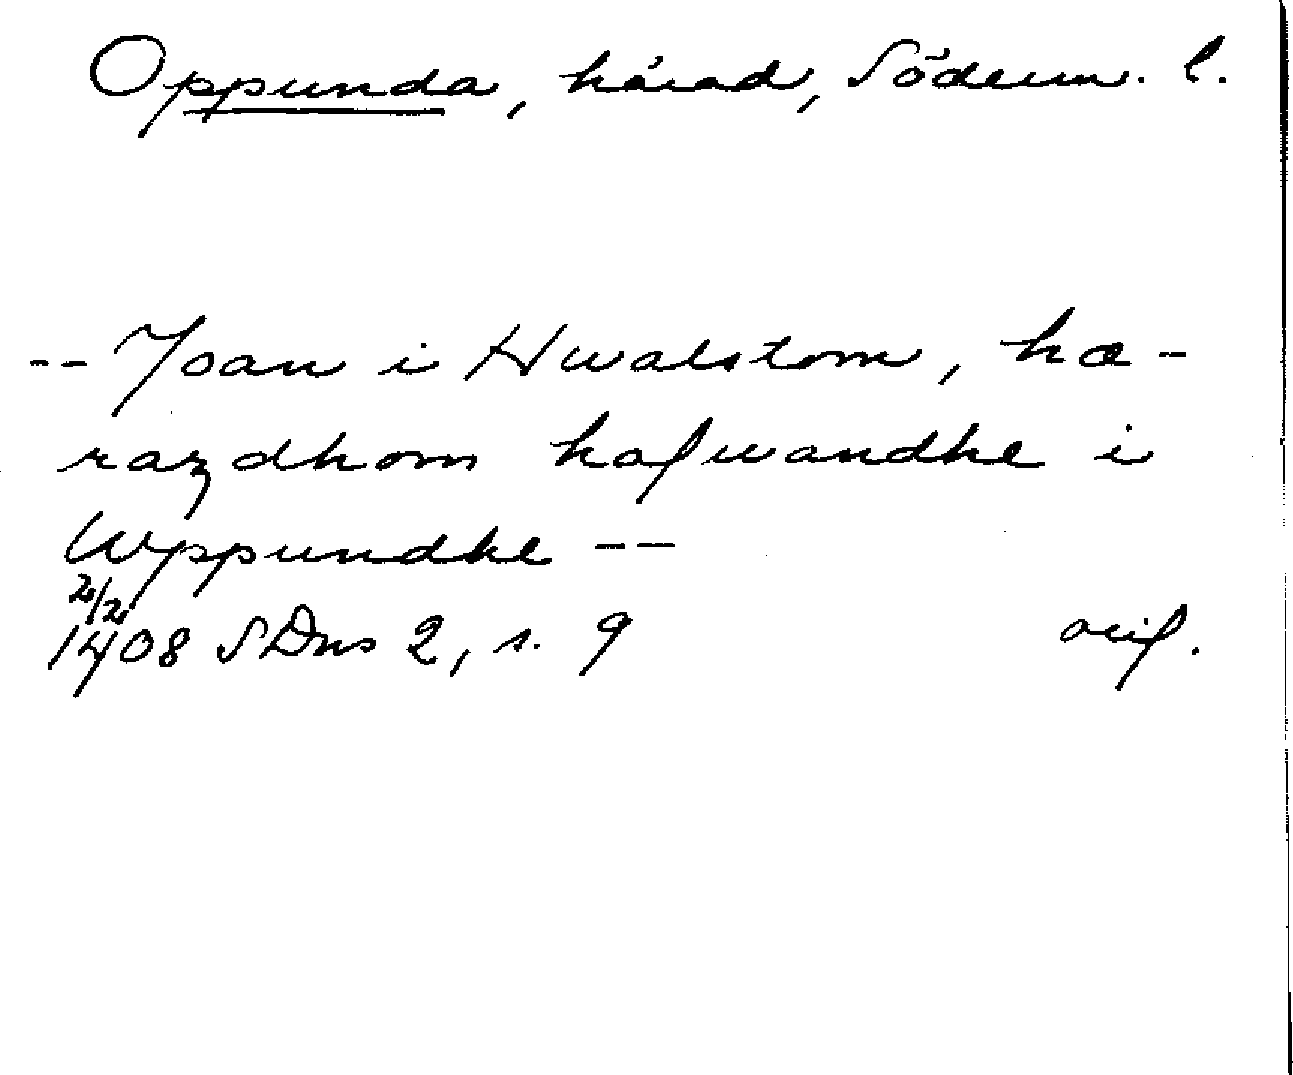 Oppunda, härad, Söderm. l.
-- Joan i Hwalstom, hæ-
razdhom hafwandhe i
Wppundhe --
2/2
1408 SDns 2, s. 9 orig.